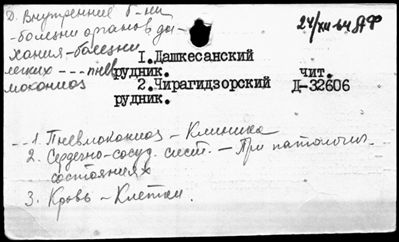 Д. Внутренние б-ни
24/XII-64 ДФ
- болезни органов ды-
хания - болезни
легких --- пнев
мокониоз
I. Дашкесанский
рудник. чит.
2. Чирагидзорский Д-32606
рудник.
-- 1. Пневмокониоз - Клиника
2. Сердечно-сосуд. сист. - При патологич.
состояниях
3. Кровь - Клетки.